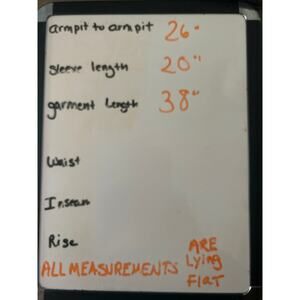 armpit to armpit 26"
sleeve length 20"
garment length 38"
Waist
Inseam
Rise
ALL MEASUREMENTS ARE
Lying
FlaT